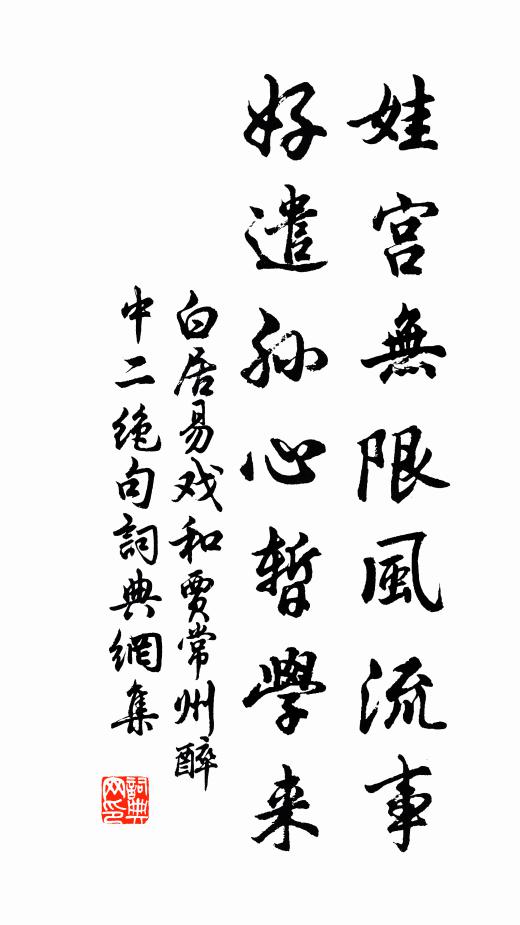 娃宫無限風流事
好遣孙心暫學来
白居易戏和贾常州醉
中二绝句詞典網集
詞典网印